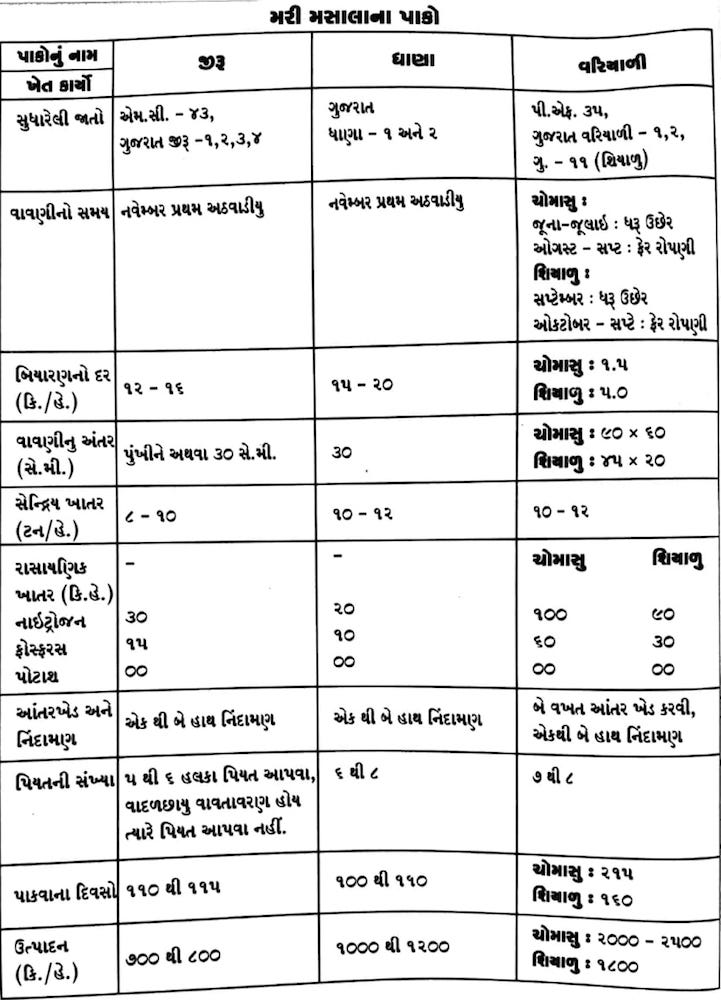 મરી મસાલાના પાકો
પાકોનું નામ
ખેત કાર્યો
જીરૂ
ધાણા
વરિયાળી
સુધારેલી જાતો
એમ.સી. – ૪૩,
ગુજરાત જીરૂ –૧,૨,૩,૪
ગુજરાત
ધાણા – ૧ અને ૨
પી.એફ. ૩૫,
ગુજરાત વરિયાળી – ૧,૨,
ગુ. – ૧૧ (શિયાળુ)
વાવણીનો સમય
નવેમ્બર પ્રથમ અઠવાડીયુ
નવેમ્બર પ્રથમ અઠવાડીયુ
ચોમાસુ :
જૂના-જૂલાઇ : ધરૂ ઉછેર
ઓગસ્ટ – સપ્ટ : ફેર રોપણી
શિયાળુ :
સપ્ટેમ્બર : ધરૂ ઉછેર
ઓકટોબર – સપ્ટે : ફેર રોપણી
બિયારણનો દર
(કિ./હે.)
૧૨ – ૧૬
૧૫ – ૨૦
ચોમાસુ : ૧.૫
શિયાળુ : ૫.૦
વાવણીનુ અંતર
(સે.મી.)
પુંખીને અથવા ૩૦ સે.મી.
૩૦
ચોમાસુ : ૯૦ × ૬૦
શિયાળુ : ૪૫ × ૨૦
સેન્દ્રિય ખાતર
(ટન/હે.)
૮ – ૧૦
૧૦ – ૧૨
૧૦ – ૧૨
રાસાયણિક
ખાતર (કિ.હે.)
નાઇટ્રોજન
ફોસ્ફરસ
પોટાશ
–
૩૦
૧૫
૦૦
–
૨૦
૧૦
૦૦
ચોમાસુ શિયાળુ
૧૦૦ ૯૦
૬૦ ૩૦
૦૦ ૦૦
આંતરખેડ અને
નિંદામણ
એક થી બે હાથ નિંદામણ
એક થી બે હાથ નિંદામણ
બે વખત આંતર ખેડ કરવી,
એકથી બે હાથ નિંદામણ
પિયતની સંખ્યા
૫ થી ૬ હલકા પિયત આપવા,
વાદળછાયુ વાવતાવરણ હોય
ત્યારે પિયત આપવા નહીં.
૬ થી ૮
૭ થી ૮
પાકવાના દિવસો
૧૧૦ થી ૧૧૫
૧૦૦ થી ૧૧૦
ચોમાસુ : ૨૧૫
શિયાળુ : ૧૬૦
ઉત્પાદન
(કિ./હે.)
૭૦૦ થી ૮૦૦
૧૦૦૦ થી ૧૨૦૦
ચોમાસુ : ૨૦૦૦ – ૨૫૦૦
શિયાળુ : ૧૮૦૦